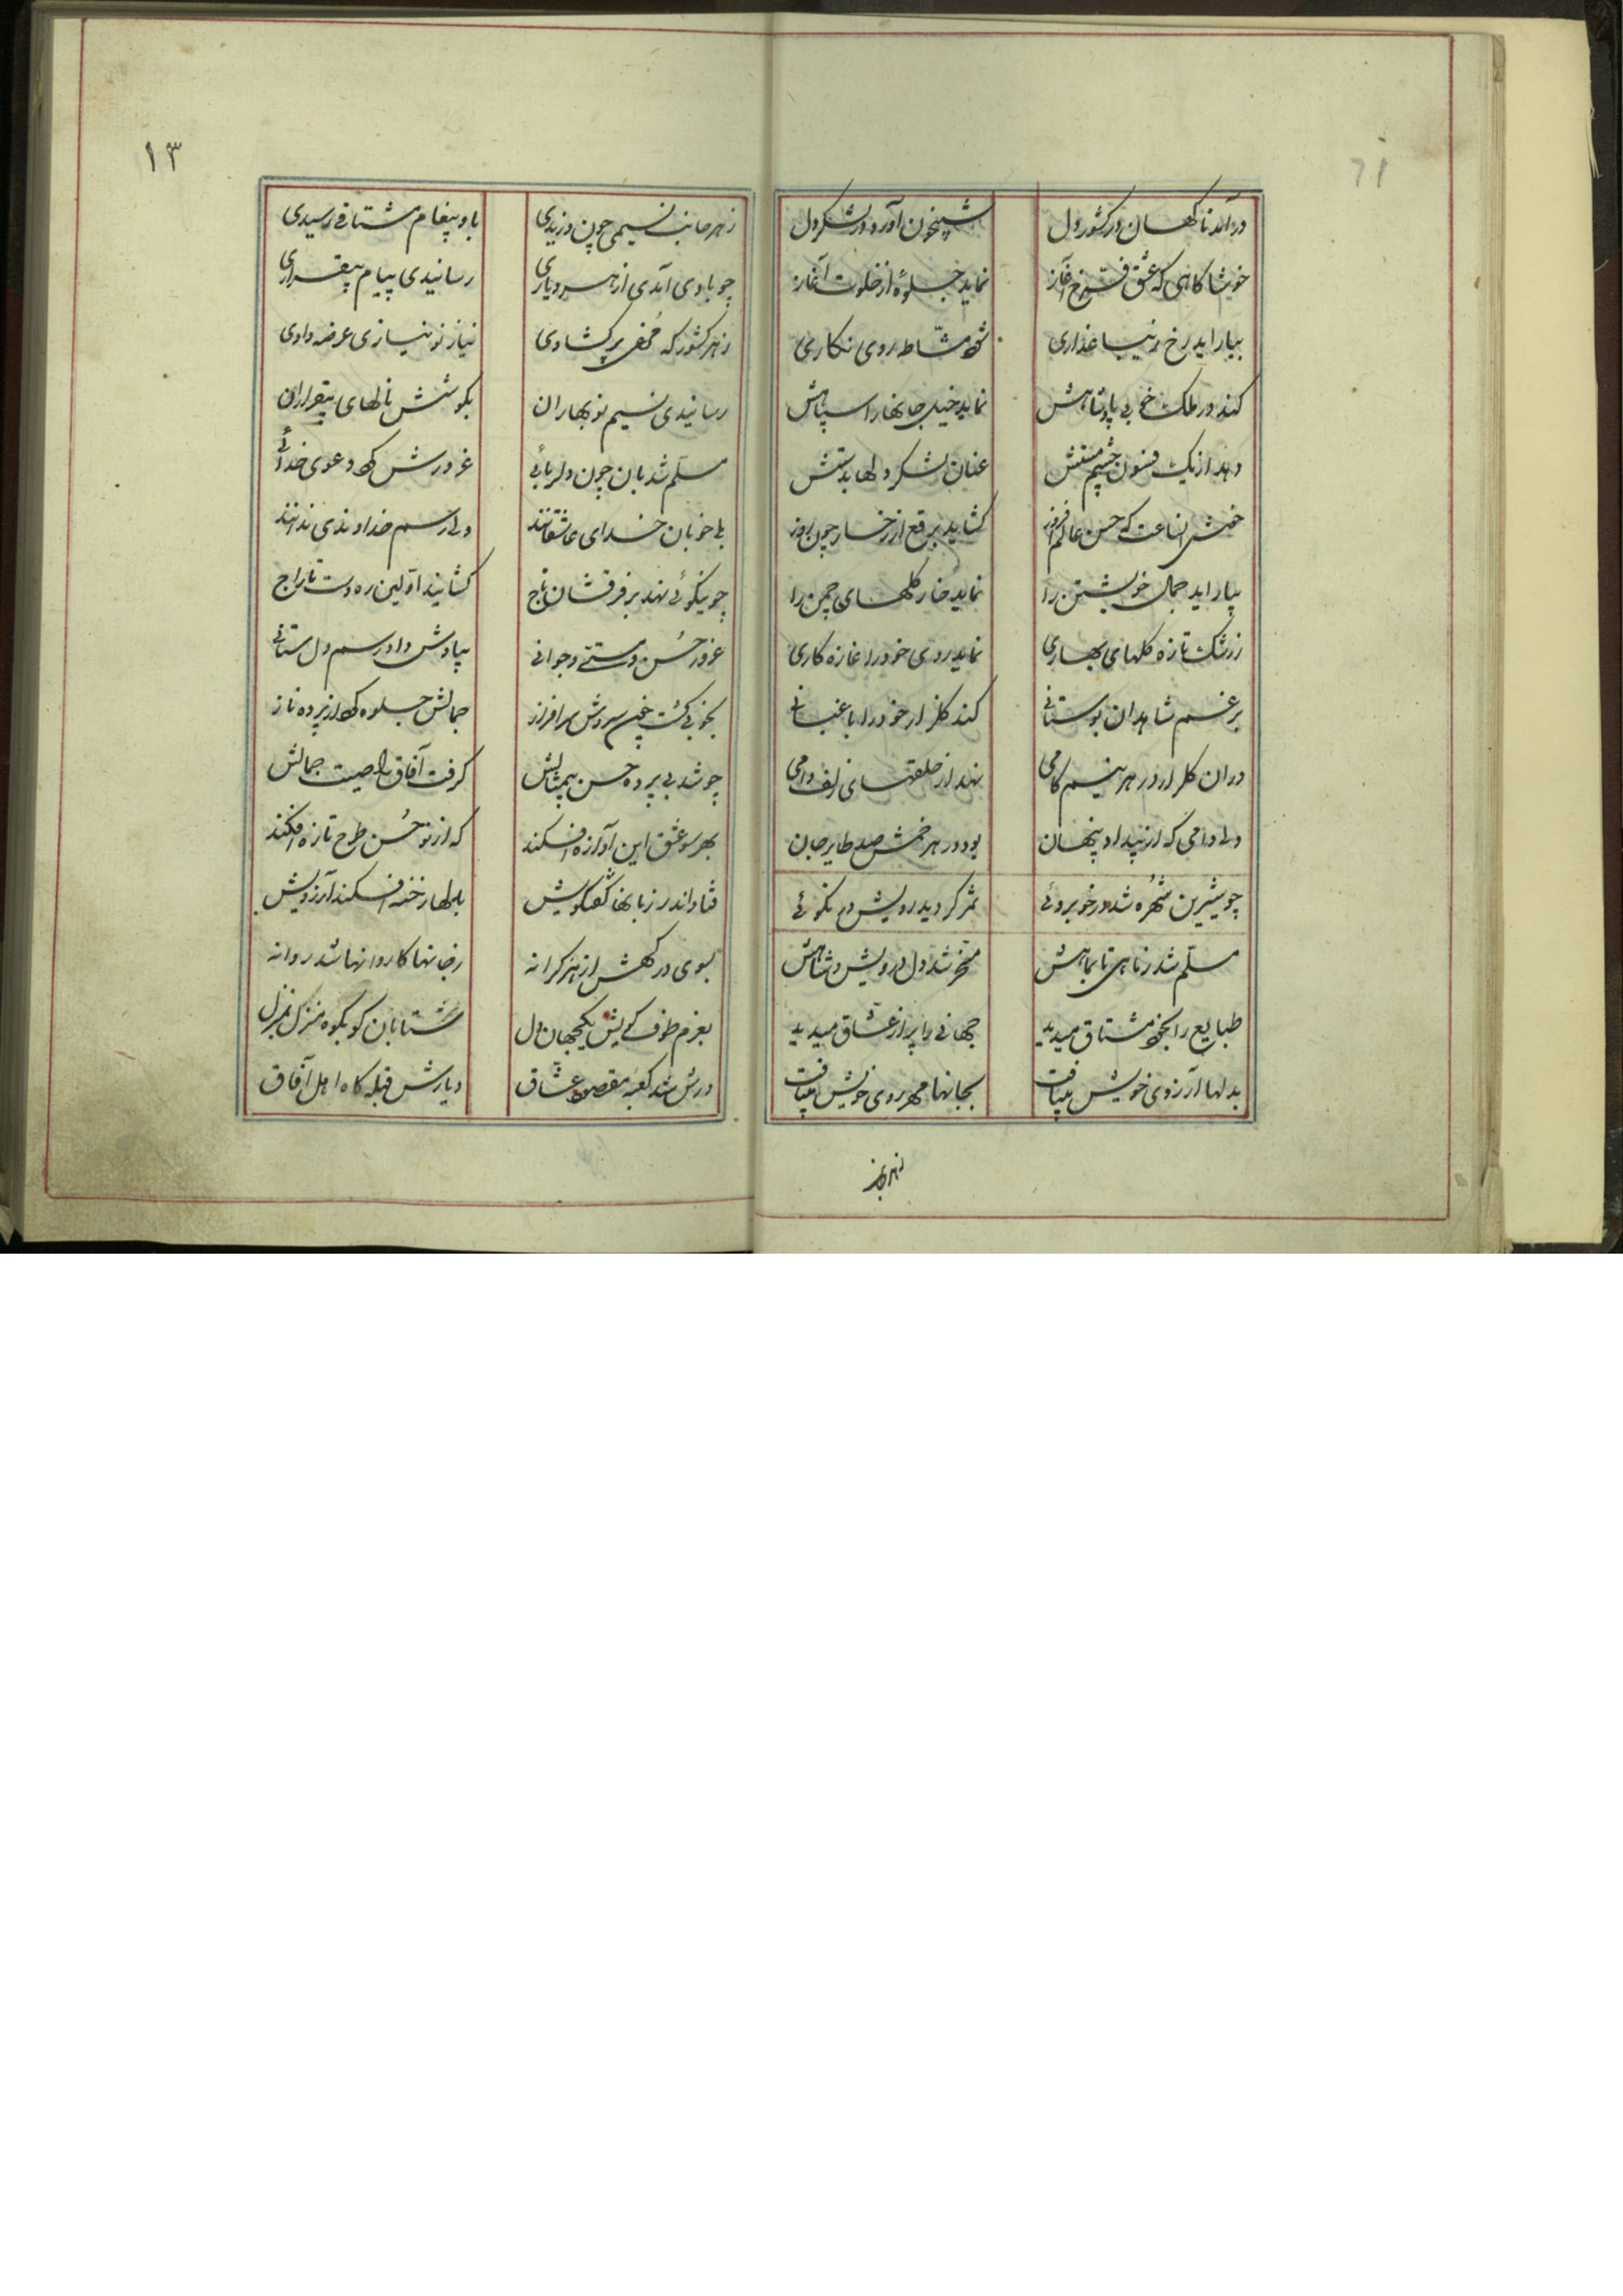 ۱۲
درآمد ناگهان در کشور دل شبیخون آورد در لشکر دل
خوشا کاهی که عشق فرخ آغاز نماید جلوهٔ از خلوت آغاز
بیاراید رخ زیبا عذاری شود مشاطه روی نکاری
کند در ملک خوبی پادشاهش نماید خیل جانها را سپاهش
دهد از یک فسون چشم مستش عنان لشکر دلها بدستش
خوش انساعت که حسن عالم افروز کشاید برقع از رخسار چون روز
بیاراید جمال خویشتن را نماید خار گلهای چمن را
ز رشک تازه گلهای بهاری نماید روی خود را غازه کاری
برغم شاهدان بوستانی کند گلزار خود را باغبانی
دران گلزار در هر نیم کامی نهد از حلقهای زلف دامی
ولی دامی که از پیدا و پنهان بود در هر خمش صد طایر جان
چو شیرین شهره شد در خوبروئی ثمر کردید رویش در نکوئی
مسلم شد ز ماهی تا بماهش مسخر شد دل درویش و شاهش
طبایع را بخود مشتاق میدید جهانی را پر از عشاق میدید
بدلها آرزوی خویش مییافت بجانها مهر روی خویش مییافت
۱۳
ز هر جانب نسیمی چون وزیدی باو پیغام مشتاقی رسیدی
چو بادی آمدی از هر دیاری رسانیدی پیام بیقراری
ز هر کشور که محمل برکشادی نیاز نو نیازی عرضه دادی
رسانیدی نسیم نوبهاران بکوشش نالهای بیقراران
مسلم شد بان چون دلربائی غرورش کرد دعوی خدائی
بلی خوبان خدای عاشقانند ولی رسم خداوندی ندانند
چو نیکوئی نهد بر فرقشان تاج کشایند اولین ره دست تاراج
غرور حسن و مستی و جوانی بیادش داد رسم دلستانی
بخوبی کشت چون سروش سرافراز جمالش جلوه کرد از پرده ناز
چو شد بی پرده حسن بیمثالش کرفت آفاق را صیت جمالش
بهر سو عشق این آوازه افکند که از نو حسن طرح تازه افکند
فتاد اندر زبانها گفتگویش بدلها رخنه افکند آرزویش
بسوی درگهش از هر کرانه ز جانها کاروانها شد روانه
بعزم طوف کویش یکجهان دل شتابان کو بکو منزل بمنزل
درش شد کعبه مقصود عشاق دیارش قبله کاه اهل آفاق